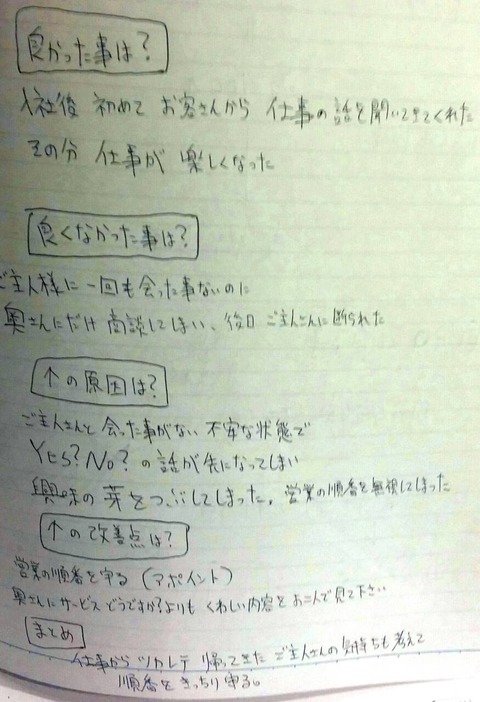 良かった事は?
入社後 初めて お客さんから 仕事の話を聞いてきてくれた
その分 仕事が 楽しくなった
良くなかった事は?
ご主人様に 一回も会った事ないのに
奥さんにだけ商談してしまい、後日 ご主人さんに断られた
↑の原因は?
ご主人さんと 会った事がない 不安な状態で
Yes?No?の話が先になってしまい
興味の芽をつぶしてしまった。営業の順番を無視してしまった
↑の改善点は?
営業の順番を守る(アポイント)
奥さんにサービスどうですか?よりも くわしい内容をお二人で見て下さい
まとめ
仕事から ツカレテ 帰ってきた ご主人さんの気持ちも考えて
順番を きっちり 守る。